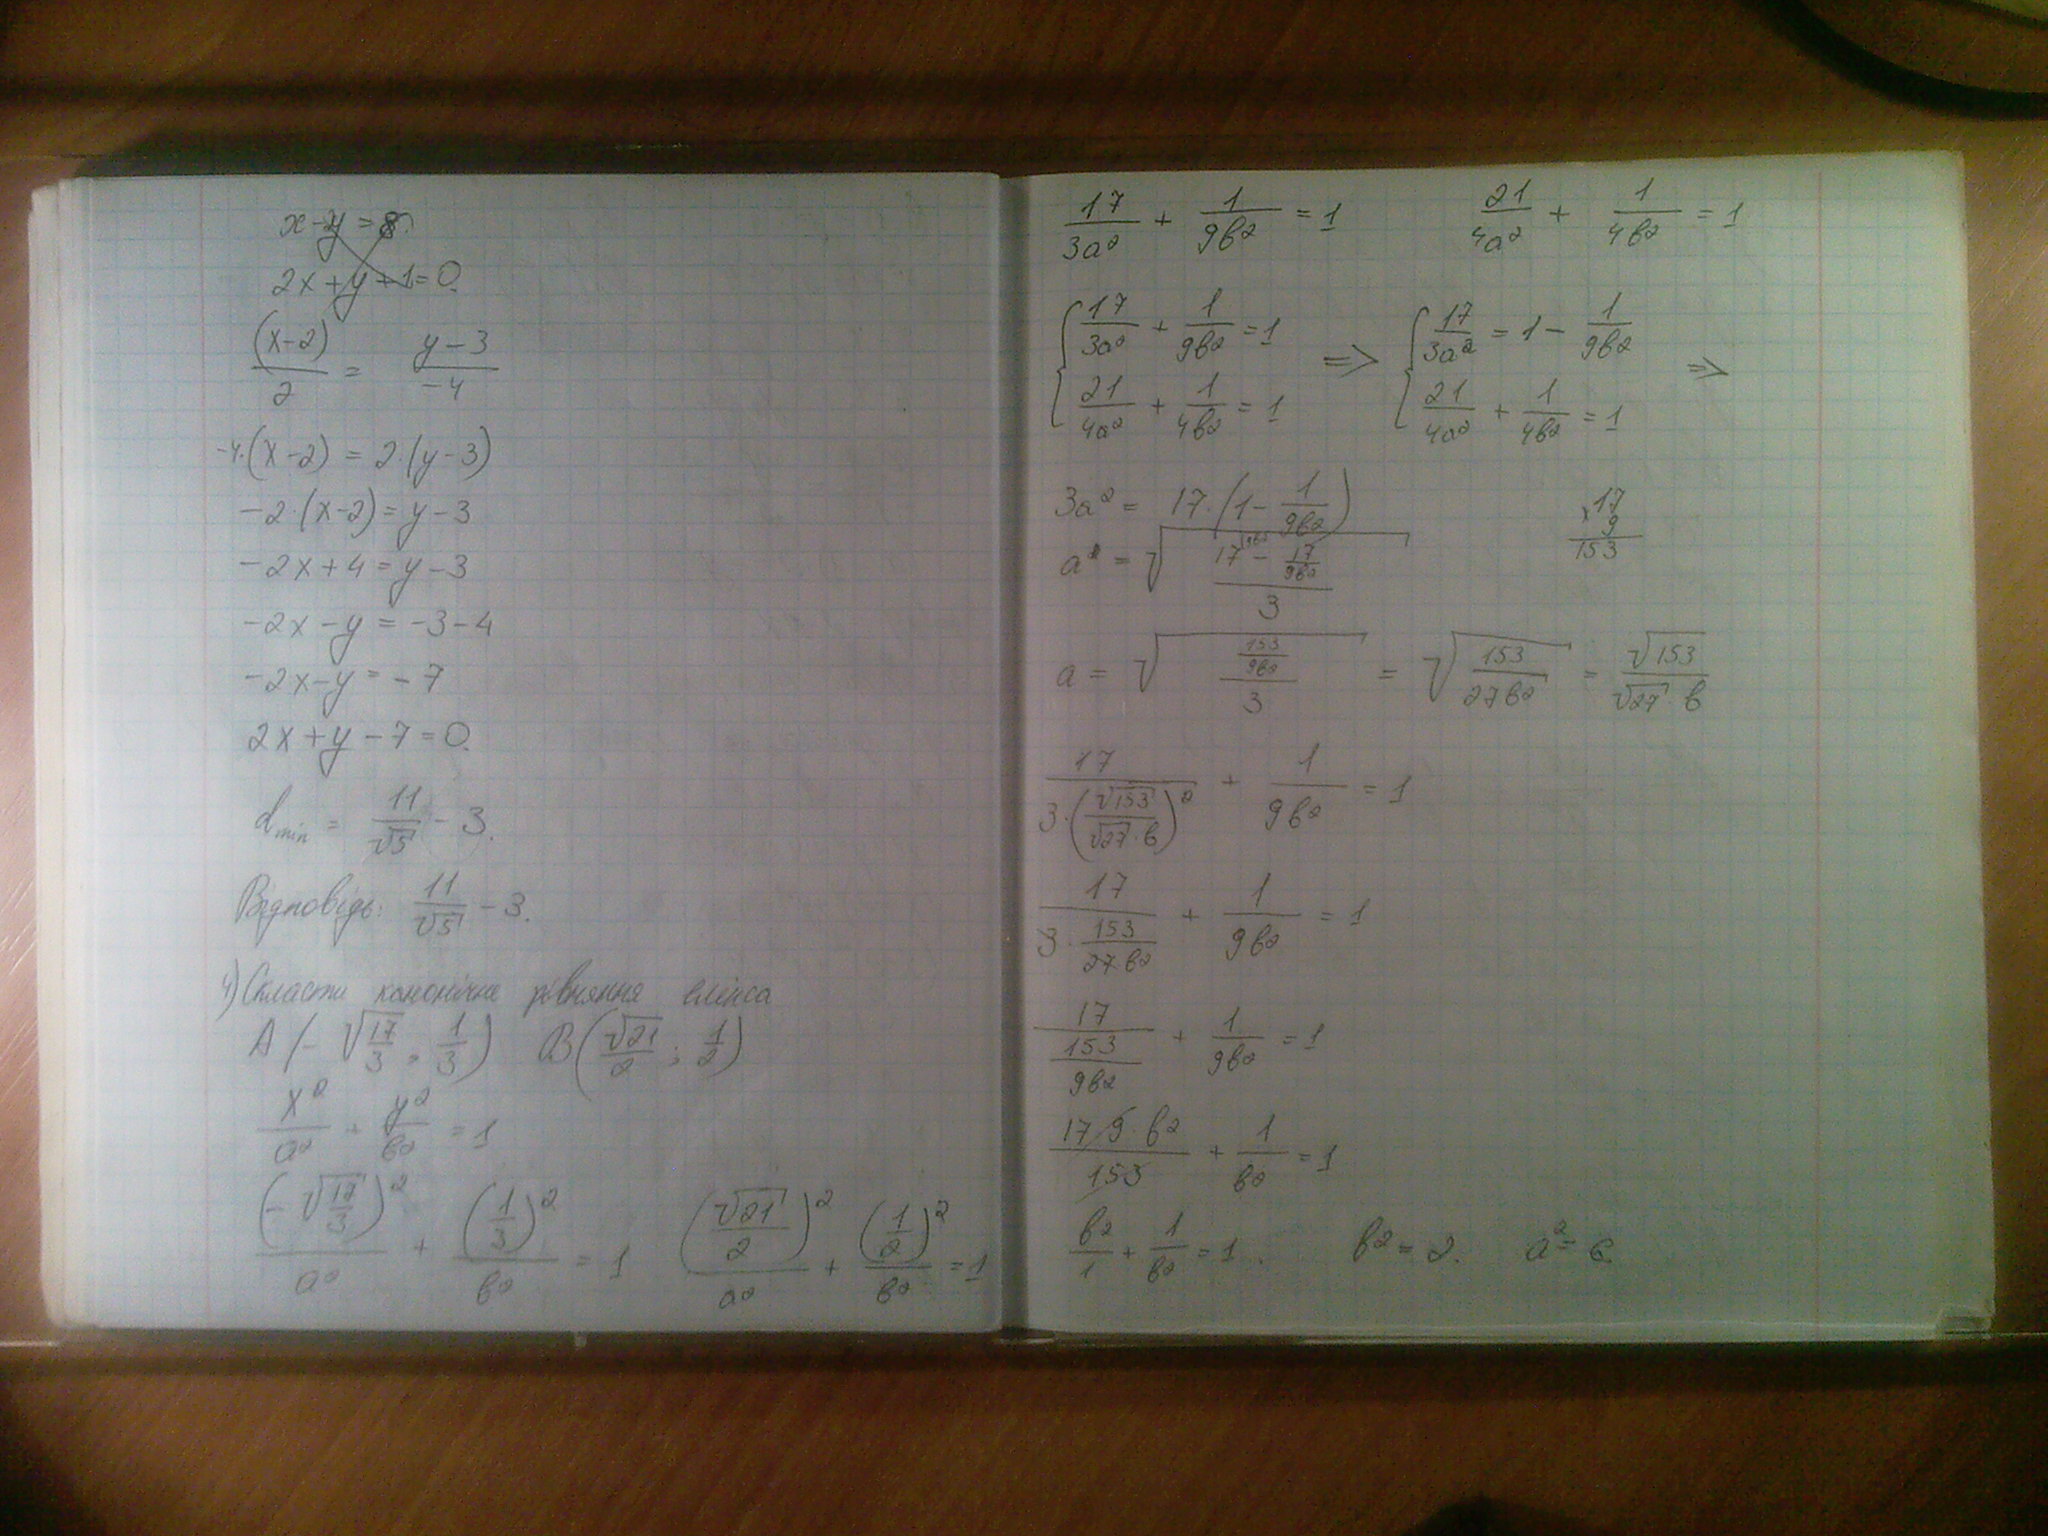 x - y = 8
2x + y + 1 = 0.
(x-2)/2 = (y-3)/-4
-4·(x-2) = 2·(y-3)
-2·(x-2) = y-3
-2x+4 = y-3
-2x-y = -3-4
-2x-y = -7
2x+y-7=0.
d min = 11/√5 - 3.
Відповідь: 11/√5 - 3.
4) Скласти канонічне рівняння еліпса
A(-√(17/3); 1/3) B(√21/2; 1/2)
x²/a² + y²/b² = 1
(-√(17/3))²/a² + (1/3)²/b² = 1 (√21/2)²/a² + (1/2)²/b² = 1
17/3a² + 1/9b² = 1 21/4a² + 1/4b² = 1
{ 17/3a² + 1/9b² = 1 => { 17/3a² = 1 - 1/9b² =>
21/4a² + 1/4b² = 1 21/4a² + 1/4b² = 1
3a² = 17·(1 - 1/9b²) ×17
9
a = √((17 - 17/9b²)/3) 153
a = √((153/9b²)/3) = √(153/27b²) = √153/(√27·b)
17/(3·(√153/(√27·b))²) + 1/9b² = 1
17/(3·153/27b²) + 1/9b² = 1
17/(153/9b²) + 1/9b² = 1
17·9·b²/153 + 1/b² = 1
b²/1 + 1/b² = 1. b² = 2. a² = 6